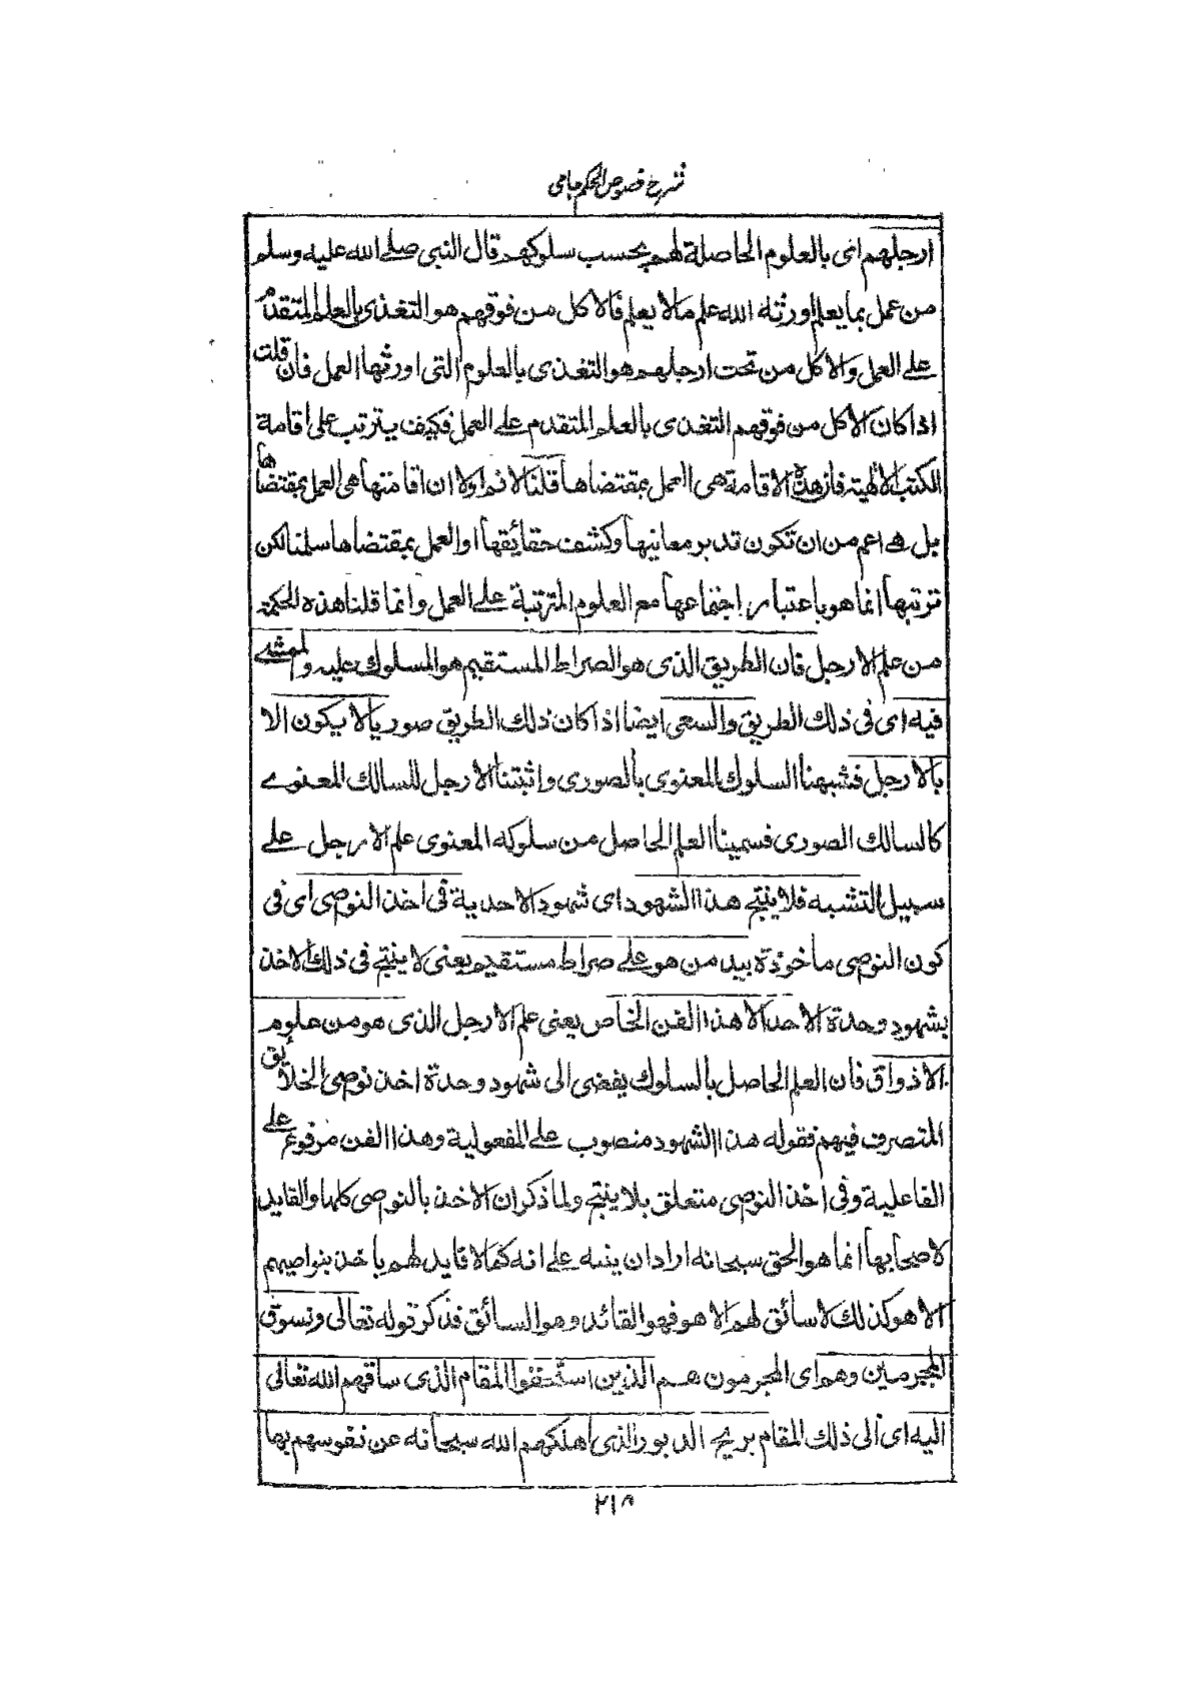 شرح فصوص الحكم جامى
ارجلهم اى بالعلوم الحاصلة لهم بحسب سلوكهم قال النبى صلے الله عليه وسلم
من عمل بما يعلم اورثه الله علم مالا يعلم فالاكل من فوقهم هو التغذى بالعلم المتقدم
علے العمل والاكل من تحت ارجلهم هو التغذى بالعلوم التى اورثها العمل فان قلت
اذا كان الاكل من فوقهم التغذى بالعلم المتقدم علے العمل فكيف يترتب على اقامة
الكتب الالٰهية فان هذه الاقامة هى العمل بمقتضاها قلنا لانم اولا ان اقامتها هى العمل بمقتضاها
بل هے اعم من ان تكون تدبر معانيها وكشف حقائقها او العمل بمقتضاها سلمنا لكن
ترتبها انما هو باعتبار اجتماعها مع العلوم المترتبة علے العمل وانما قلنا هذه الحكمة
من علم الارجل فان الطريق الذى هو الصراط المستقيم هو المسلوك عليه والمشے
فيه اى فى ذلك الطريق والسعى ايضا اذا كان ذلك الطريق صوريا لا يكون الا
بالارجل فشبهنا السلوك المعنوى بالصورى واثبتنا الارجل للسالك المعنوے
كالسالك الصورى فسمينا العلم الحاصل من سلوكه المعنوى علم الارجل علے
سبيل التشبه فلا ينتج هذا الشهود اى شهود الاحدية فى اخذ النوصى اى فى
كون النوصى ماخوذة بيد من هو علے صراط مستقيم يعنى لا ينتج فى ذلك الاخذ
بشهود وحدة الاخذ الا هذا الفن الخاص يعنى علم الارجل الذى هو من علوم
الاذواق فان العلم الحاصل بالسلوك يفضى الى شهود وحدة اخذ نوصى الخلايق
المتصرف فيهم فقوله هذا الشهود منصوب علے المفعولية وهذا الفن مرفوع علے
الفاعلية وفى اخذ النوصى متعلق بلا ينتج ولما ذكر ان الاخذ بالنوصى كلها والقايد
لاصحابها انما هو الحق سبحانه اراد ان ينبه علے انه كما لا قايد لهم ياخذ بنواصيهم
الا هو كذلك لا سائق لهم الا هو فهو القائد وهو السائق فذكر قوله تعالى ونسوق
المجرمين وهم اى المجرمون هم الذين استحقوا المقام الذى ساقهم الله تعالى
اليه اى الى ذلك المقام بريح الدبور الذى اهلكهم الله سبحانه عن نفوسهم بها
٢١٨